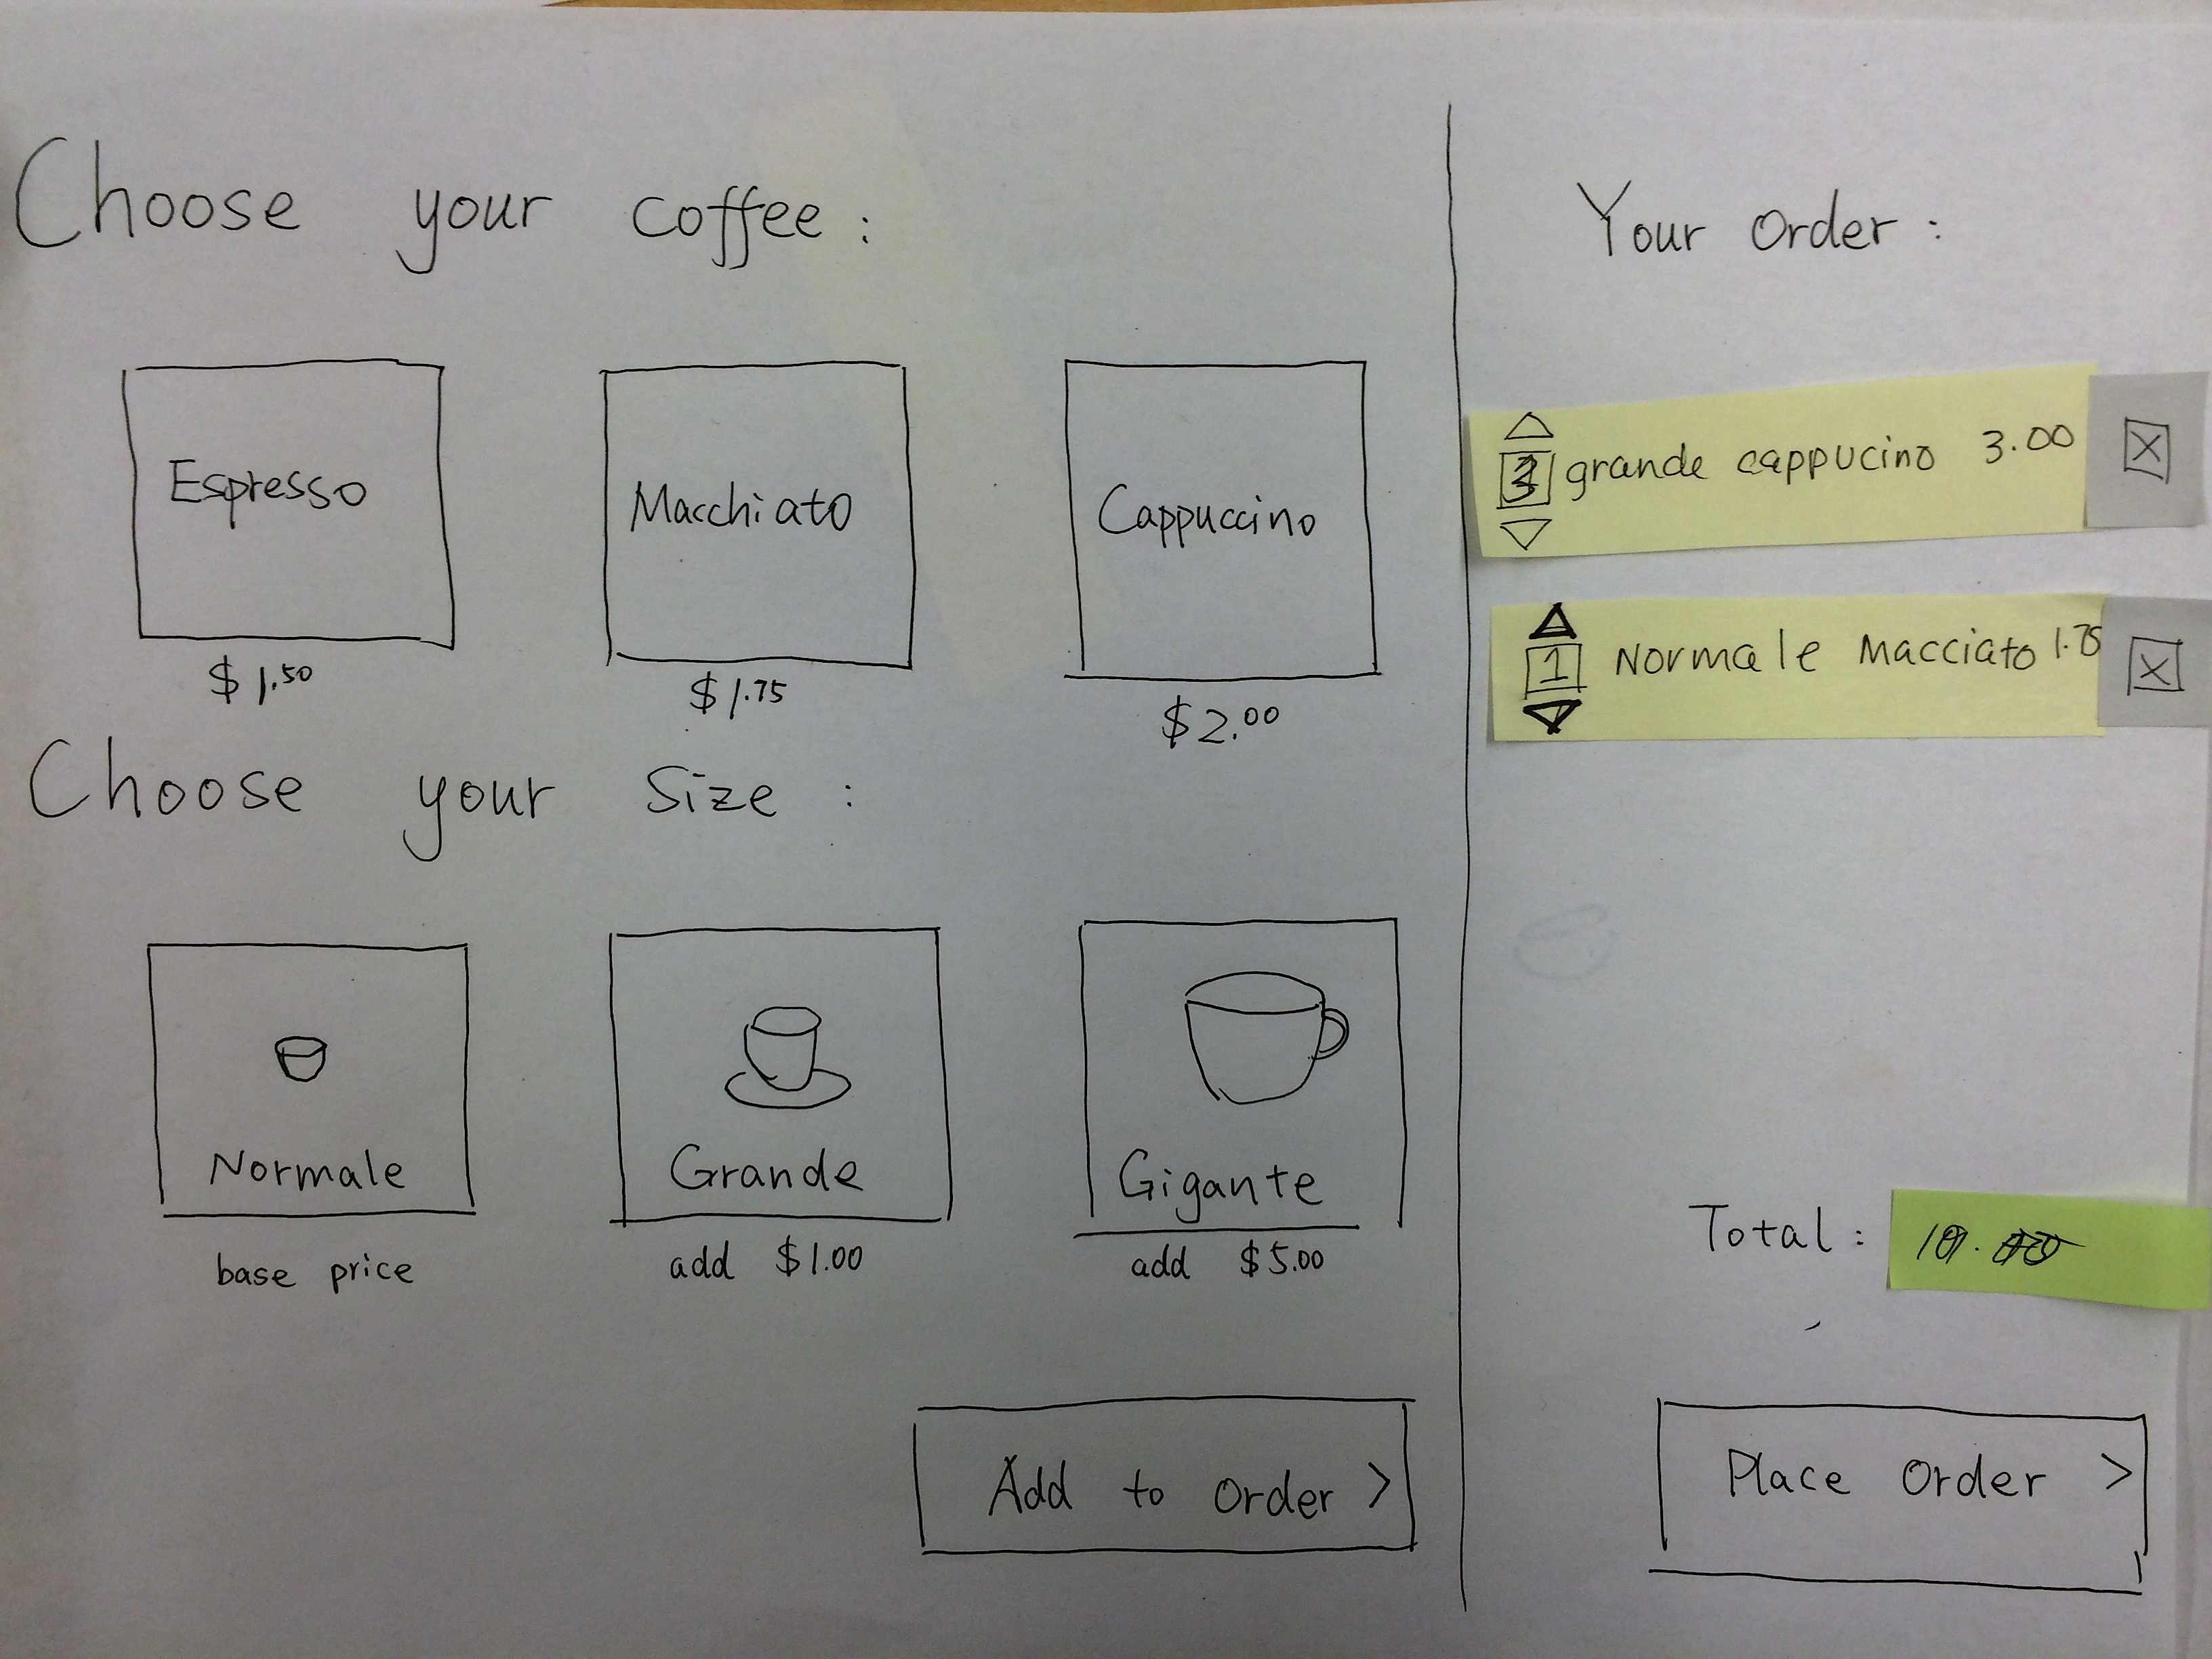 Choose your coffee :
Espresso
$1.50
Macchiato
$1.75
Cappuccino
$2.00
Choose your Size :
Normale
base price
Grande
add $1.00
Gigante
add $5.00
Add to order >
Your Order :
grande cappucino 3.00 X
1 Normale Macciato 1.75 X
Total :
Place Order >